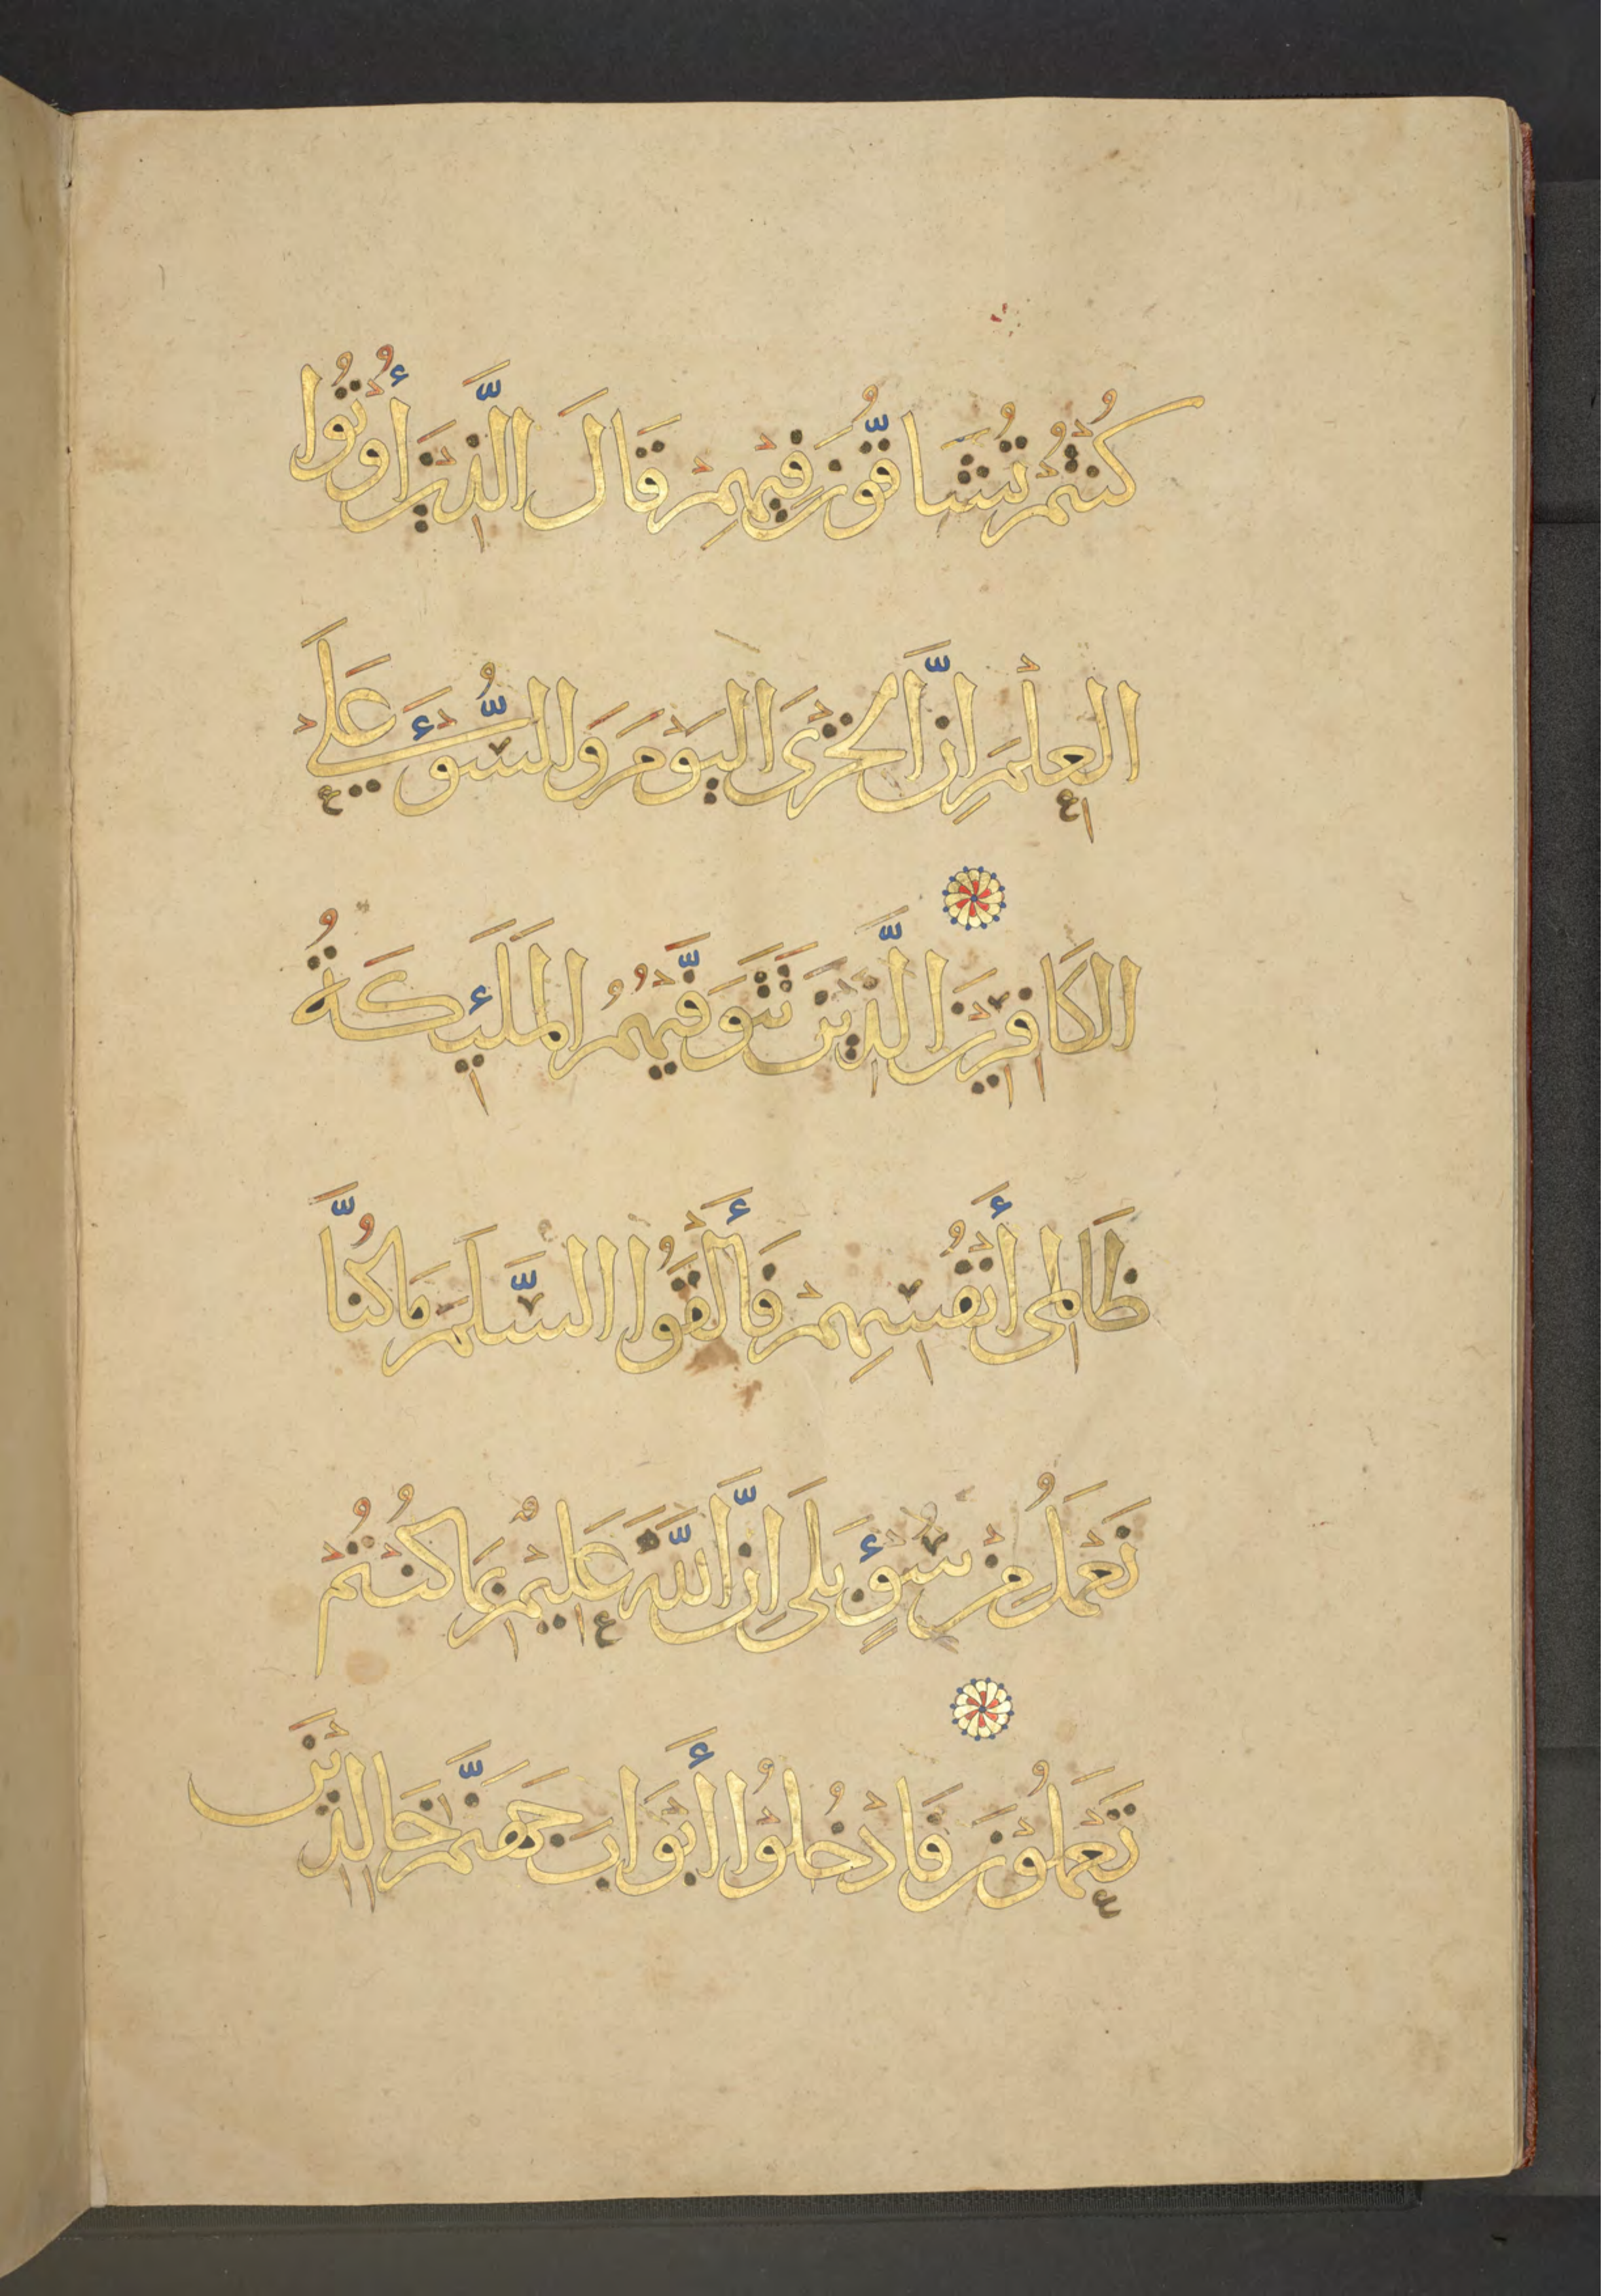 كُنْتُمْ تُشَاقُّونَ فِيهِمْ قَالَ الَّذِينَ أُوتُوا
العِلْمَ إِنَّ الخِزْىَ اليَوْمَ وَالسُّوْءَ عَلَى
الكَافِرِينَ الَّذِينَ تَتَوَفَّيهُمُ المَلَئِكَةُ
ظَالِمِى أَنْفُسِهِمْ فَأَلْقَوُا السَّلَمَ مَا كُنَّا
نَعْمَلُ مِنْ سُوْءٍ بَلَى إِنَّ اللَّهَ عَلِيمٌ بِمَا كُنْتُمْ
تَعْمَلُوْنَ فَادْخُلُوْا أَبْوَابَ جَهَنَّمَ خَالِدِيْنَ